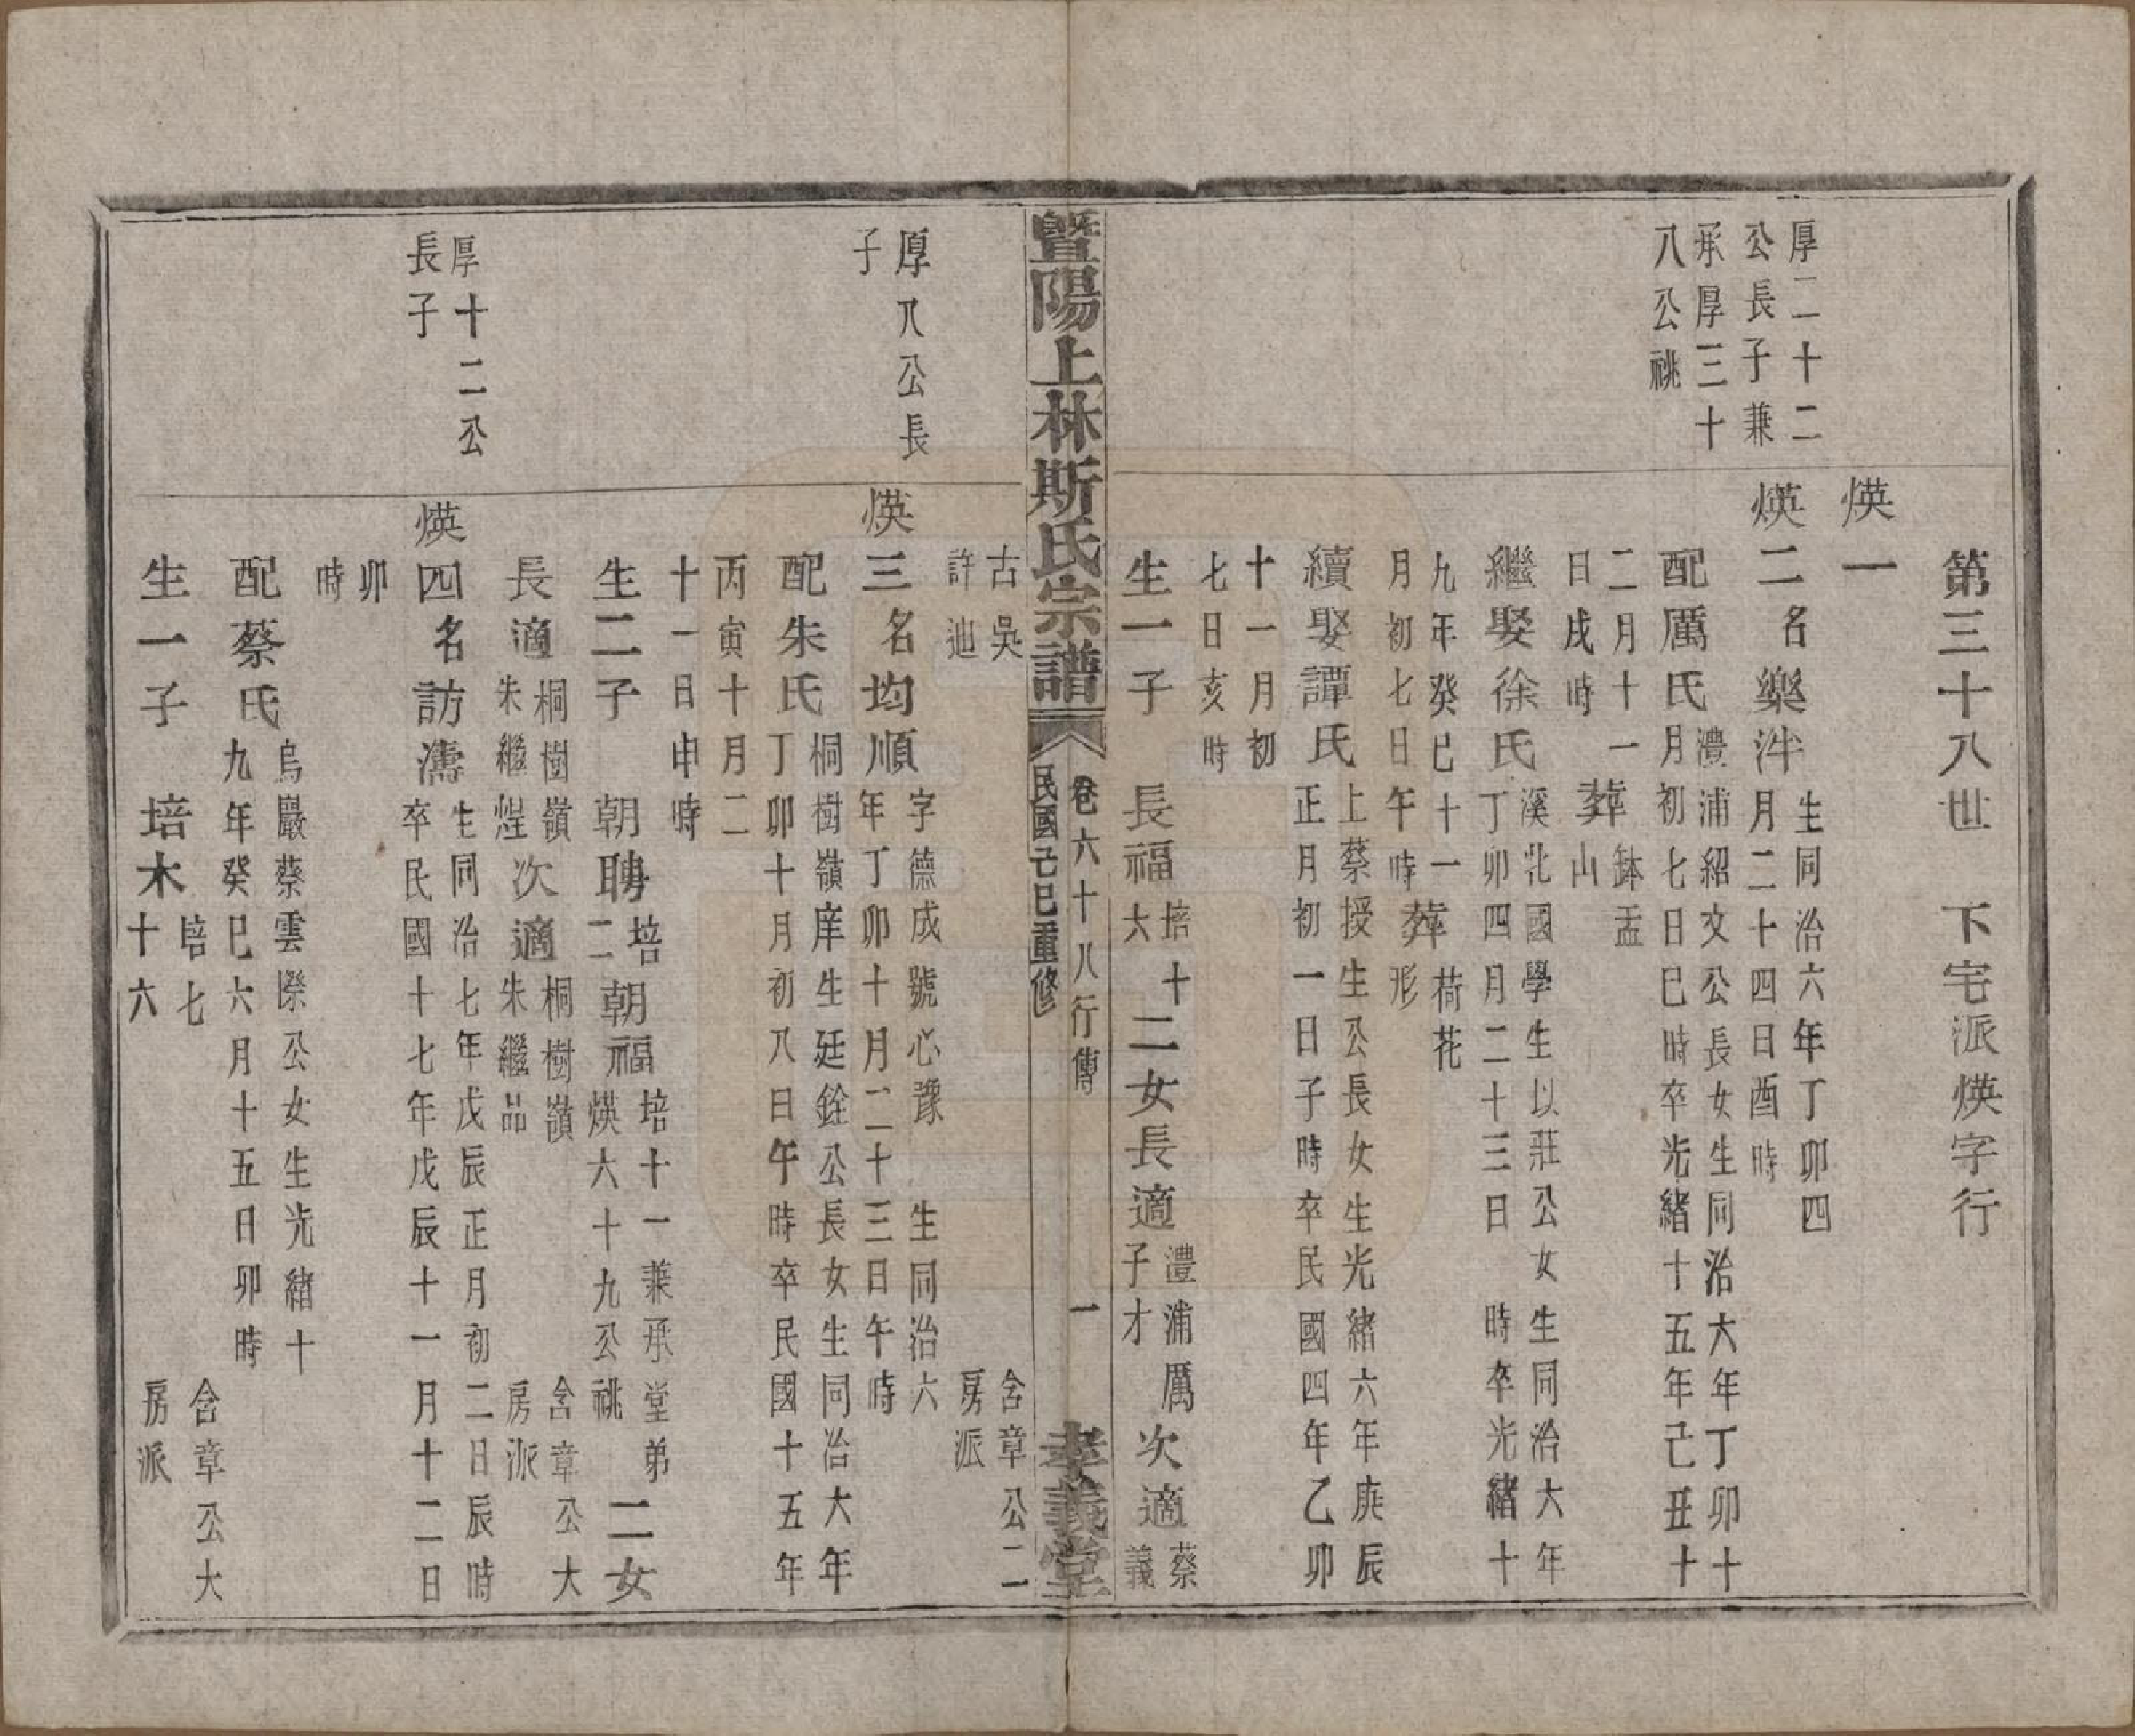 第三十八世　下宅派煐字行
煐一
厚二十二
公長子兼
承厚三十
八公祧
煐二名樂泮
生同治六年丁卯四
月二十四日酉時
配厲氏
澧浦紹文公長女生同治六年丁卯十
月初七日巳時卒光緒十五年己丑十
二月十一
日戌時
葬
鉢盂
山
繼娶徐氏
溪北國學生以莊公女生同治六年
丁卯四月二十三日　時卒光緒十
九年癸巳十一
月初七日午時
葬
荷花
形
續娶譚氏
上蔡授生公長女生光緒六年庚辰
正月初一日子時卒民國四年乙卯
十一月初
七日亥時
生一子　長福
培十
大
二女長適
澧浦厲
子才
次適
蔡
義
暨陽上林斯氏宗譜
卷六十八行傳
民國己巳重修
一
孝義堂
古吳
許迆
含章公二
房派
厚八公長
子
煐三名均順
字德成號心豫　生同治六
年丁卯十月二十三日午時
配朱氏
桐樹嶺庠生廷銓公長女生同治六年
丁卯十月初八日午時卒民國十五年
丙寅十月二
十一日申時
生二子　朝聘
培
二
朝福
培十一兼承堂弟
煐六十九公祧
二女
長適
桐樹嶺
朱繼煋
次適
桐樹嶺
朱繼品
含章公大
房派
厚十二公
長子
煐四名訪濤
生同治七年戊辰正月初二日辰時
卒民國十七年戊辰十一月十二日
卯
時
配蔡氏
烏巖蔡雲際公女生光緒十
九年癸巳六月十五日卯時
生一子　培木
培七
十六
含章公大
房派